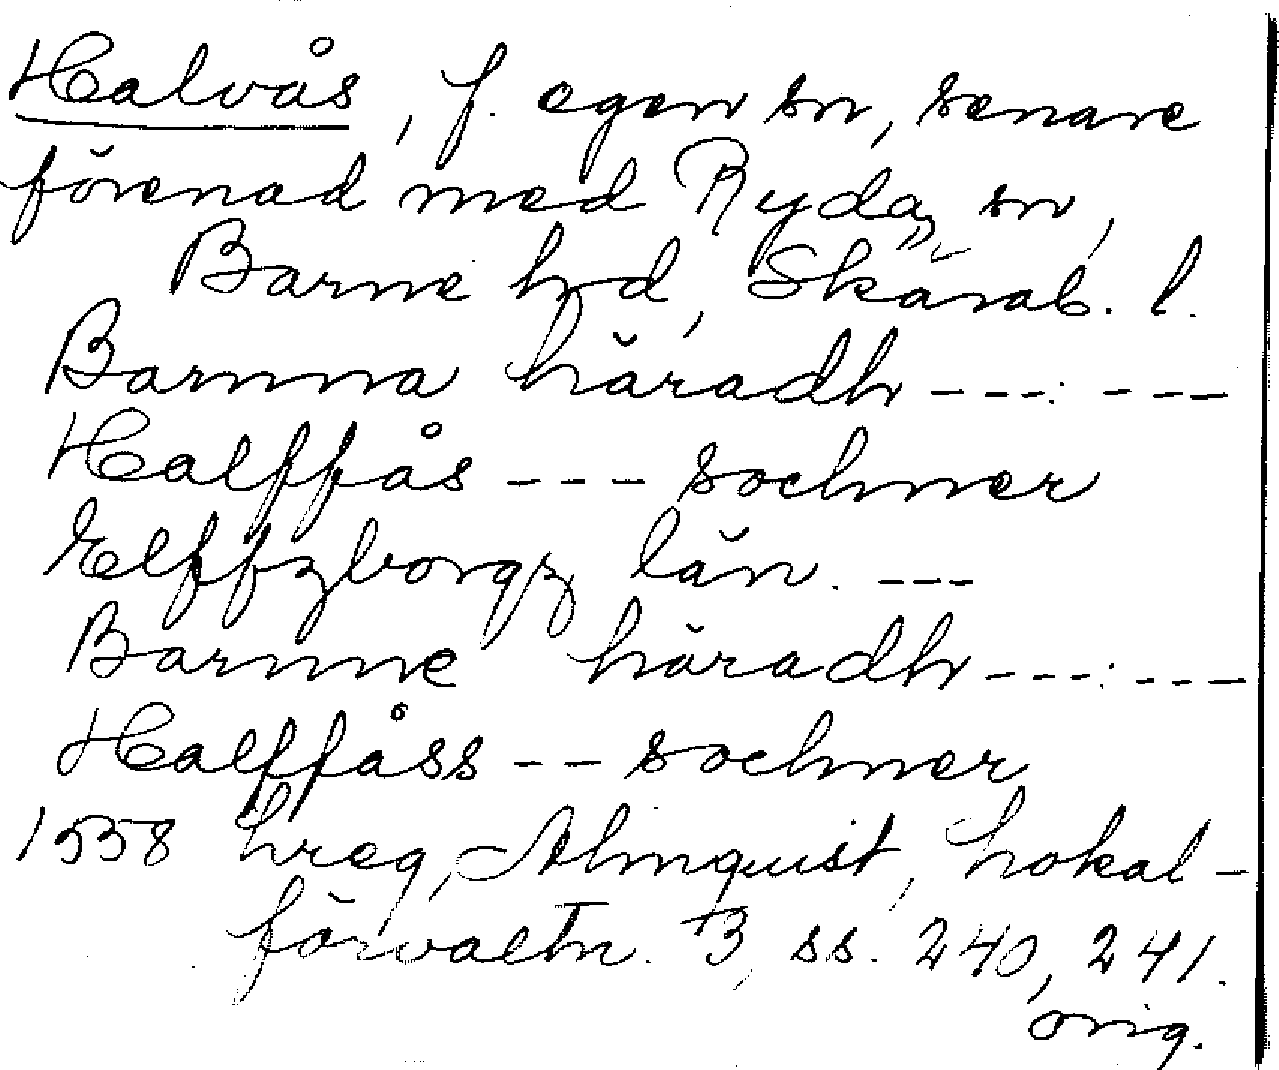 Halvås, f. egen sn, senare
förenad med Ryda sn,
Barne hd, Skarab. l.
Barnna häradh ---:---
Halffås --- sochner
Elffzborgz län. ---
Barnne häradh ---:---
Halffåss -- sochner
1558 hreg, Almquist, Lokal-
förvaltn. 3, ss. 240, 241.
orig.